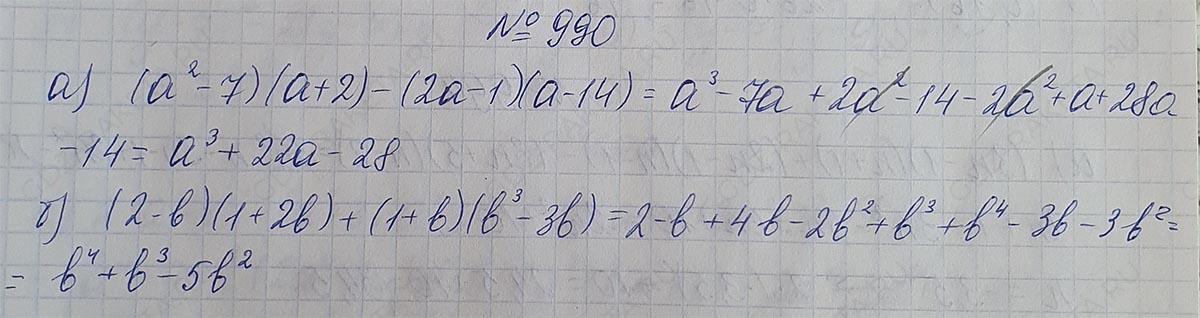 № 990
а) (a² - 7)(a + 2) - (2a - 1)(a - 14) = a³ - 7a + 2a² - 14 - 2a² + a + 28a
- 14 = a³ + 22a - 28
б) (2 - b)(1 + 2b) + (1 + b)(b³ - 3b) = 2 - b + 4b - 2b² + b³ + b⁴ - 3b - 3b² =
= b⁴ + b³ - 5b²